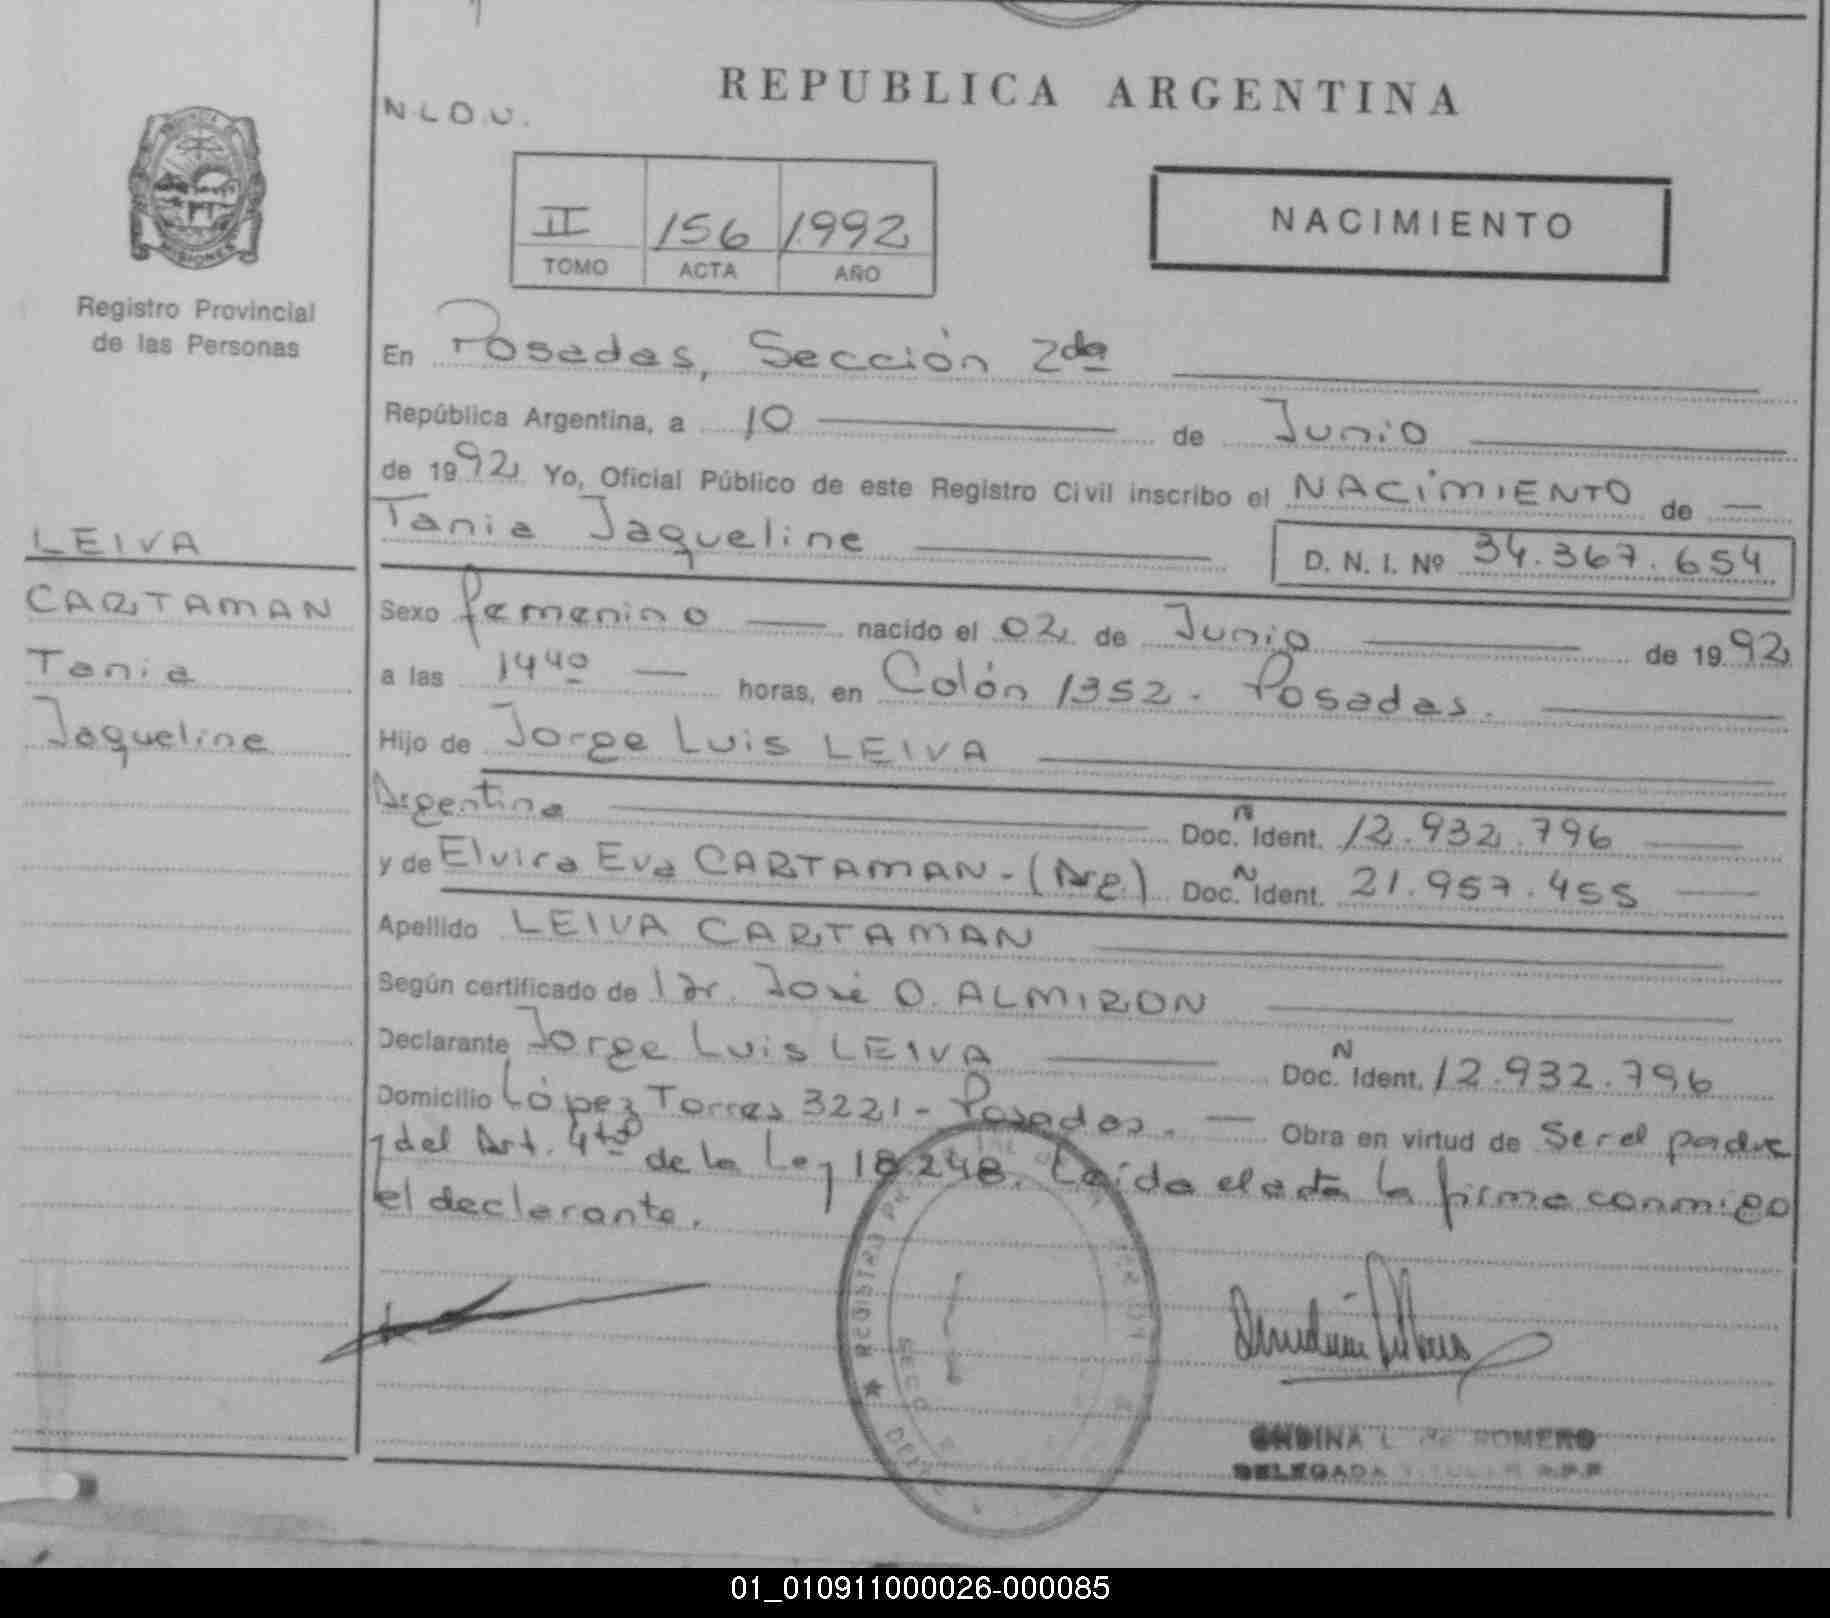 REPUBLICA ARGENTINA
N.L.D.U.
II 156 1992
TOMO ACTA AÑO
NACIMIENTO
Registro Provincial
de las Personas
LEIVA
CARTAMAN
Tania
Jaqueline
En Posadas, Sección 2da
República Argentina, a 10 de Junio
de 1992 Yo, Oficial Público de este Registro Civil inscribo el NACIMIENTO de
Tania Jaqueline D. N. I. Nº 34.367.654
Sexo femenino nacido el 02 de Junio de 1992
a las 14 40 horas, en Colón 1352 - Posadas.
Hijo de Jorge Luis LEIVA
Argentina Doc. N Ident. 12.932.796
y de Elvira Eva CARTAMAN - (Arg.) Doc. N Ident. 21.957.455
Apellido LEIVA CARTAMAN
Según certificado de Dr. José O. ALMIRON
Declarante Jorge Luis LEIVA Doc. N Ident. 12.932.796
Domicilio López Torres 3221 - Posadas. Obra en virtud de Ser el padre
y del Art. 4to de la Ley 18.248. Leída el acta la firma conmigo
el declarante.
REGISTRO
ONDINA L. de ROMERO
DELEGADA TITULAR R.P.P
01_010911000026-000085